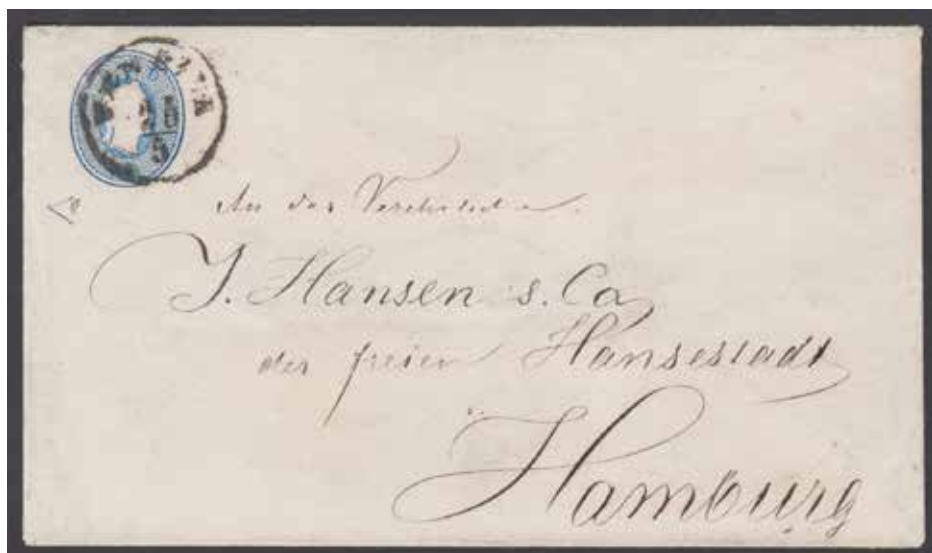 VENEZIA
An das
J. Hansen s. Co
der freien Hansestadt
Hamburg